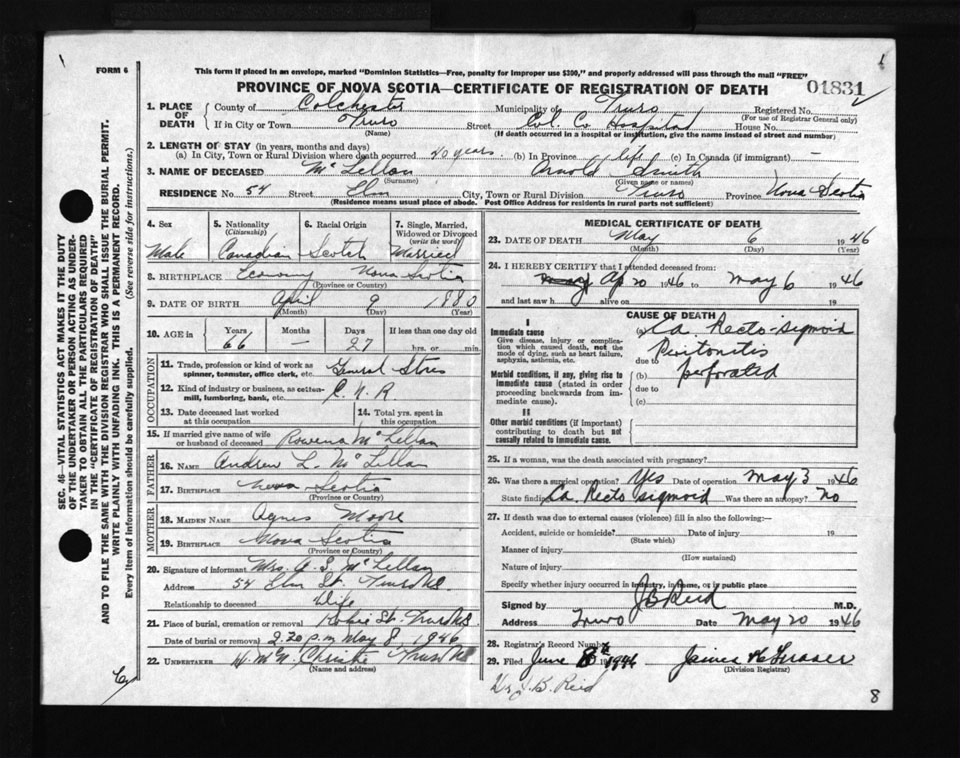 FORM 6
This form if placed in an envelope, marked "Dominion Statistics—Free, penalty for improper use $300," and properly addressed will pass through the mail "FREE"
PROVINCE OF NOVA SCOTIA—CERTIFICATE OF REGISTRATION OF DEATH
01831
1. PLACE OF DEATH County of Colchester Municipality of Truro Registered No.
(For use of Registrar General only)
If in City or Town Truro Street Col. Co Hospital House No.
(Name) (If death occurred in a hospital or institution, give the name instead of street and number)
2. LENGTH OF STAY (in years, months and days)
(a) In City, Town or Rural Division where death occurred 40 years. (b) In Province life (c) In Canada (if immigrant) —
3. NAME OF DECEASED McLellan Arnold Smith
(Surname) (Given name or names)
RESIDENCE No. 54 Street Elm City, Town or Rural Division Truro Province Nova Scotia
(Residence means usual place of abode. Post Office Address for residents in rural parts not sufficient)
4. Sex 5. Nationality (Citizenship) 6. Racial Origin 7. Single, Married, Widowed or Divorced (write the word)
Male Canadian Scotch Married
8. BIRTHPLACE Economy Nova Scotia
(Province or Country)
9. DATE OF BIRTH April 9 1880
(Month) (Day) (Year)
10. AGE in Years Months Days If less than one day old
66 — 27 hrs. or min.
OCCUPATION
11. Trade, profession or kind of work as spinner, teamster, office clerk, etc. General Stores
12. Kind of industry or business, as cotton-mill, lumbering, bank, etc. C. N. R.
13. Date deceased last worked at this occupation 14. Total yrs. spent in this occupation
15. If married give name of wife or husband of deceased Rowena McLellan
FATHER
16. NAME Andrew L. McLellan
17. BIRTHPLACE Nova Scotia
(Province or Country)
MOTHER
18. MAIDEN NAME Agnes Moore
19. BIRTHPLACE Nova Scotia
(Province or Country)
20. Signature of informant Mrs. A. S. McLellan
Address 54 Elm St. Truro NS.
Relationship to deceased Wife
21. Place of burial, cremation or removal Robie St. Truro NS
Date of burial or removal 2.30 p.m May 8, 1946
22. UNDERTAKER Truro NS
(Name and address)
MEDICAL CERTIFICATE OF DEATH
23. DATE OF DEATH May 6 1946
(Month) (Day) (Year)
24. I HEREBY CERTIFY that I attended deceased from:
Ap 20 1946 to May 6 1946
and last saw h alive on 19
CAUSE OF DEATH
I
Immediate cause
Give disease, injury or complication which caused death, not the mode of dying, such as heart failure, asphyxia, asthenia, etc.
(a) Ca. Recto-sigmoid
due to Peritonitis
perforated
Morbid conditions, if any, giving rise to immediate cause (stated in order proceeding backwards from immediate cause).
(b)
due to
(c)
II
Other morbid conditions (if important) contributing to death but not causally related to immediate cause.
25. If a woman, was the death associated with pregnancy?
26. Was there a surgical operation? Yes Date of operation May 3 1946
State findings Ca. Recto sigmoid Was there an autopsy? No
27. If death was due to external causes (violence) fill in also the following:—
Accident, suicide or homicide? Date of injury 19
(State which)
Manner of injury
(How sustained)
Nature of injury
Specify whether injury occurred in industry, in home, or in public place
Signed by J B Reid M.D.
Address Truro Date May 20 1946
28. Registrar's Record Number
29. Filed June 8th 1946 James H Fraser
(Division Registrar)
Dr J. B. Reid
8
SEC. 46—VITAL STATISTICS ACT MAKES IT THE DUTY
OF THE UNDERTAKER OR PERSON ACTING AS UNDER-
TAKER TO OBTAIN ALL THE PARTICULARS REQUIRED
IN THE "CERTIFICATE OF REGISTRATION OF DEATH"
AND TO FILE THE SAME WITH THE DIVISION REGISTRAR WHO SHALL ISSUE THE BURIAL PERMIT.
WRITE PLAINLY WITH UNFADING INK. THIS IS A PERMANENT RECORD.
Every item of information should be carefully supplied. (See reverse side for instructions.)